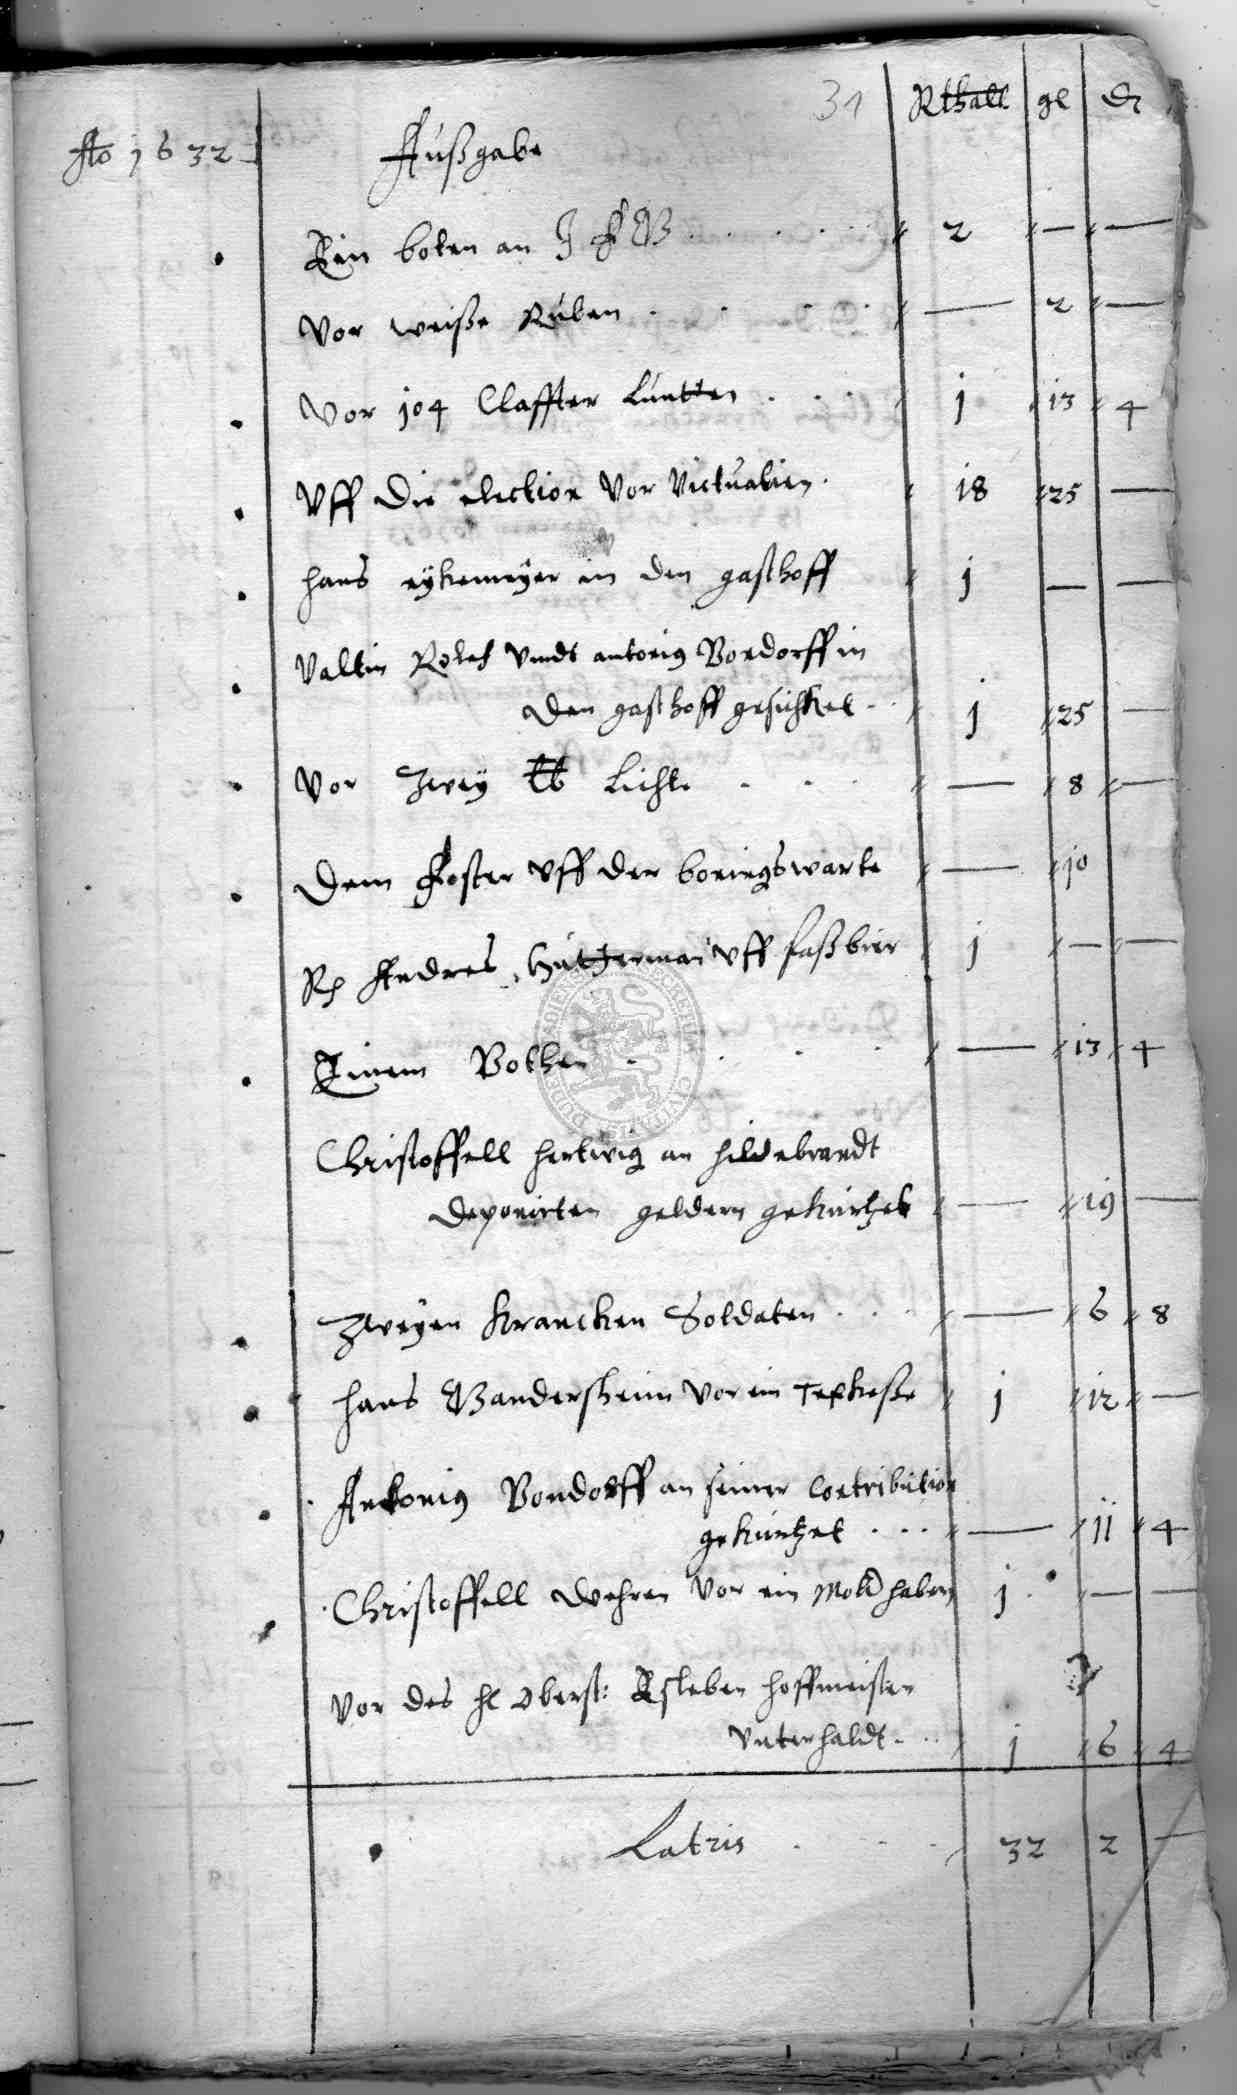 31
Rthall gl d
Ao 1632
Außgabe
Ein boten an J F G 2 — —
Vor weiße Ruben — 2 —
Vor 104 Claffter Luntten 1 13 4
Vff die election Vor Victualien 18 25 —
Hans eykemeyer in den gasthoff 1 — —
Valtin Vndt antonig Bondorff in
den gasthoff geschicket 1 25 —
Vor Zwey lb Licht — 8 —
Dem Foster Vff der boringswarte — 10
Andres Vff faßbier 1 — —
Einem Bothen — 13 4
Christoffell hertwig an hildebrandt
deponirten geldern gekürtzet — 19 —
Zweyen Krancken Soldaten — 6 8
Hans Gandersheim Vor ein 1 12 —
Antonig Bondorff an seiner Contribution
gekürtzet — 11 4
Christoffell Wehren Vor ein haber 1 — —
Vor des H Oberst: hoffmeister
Vnterhaldt 1 6 4
Latris 32 2 —